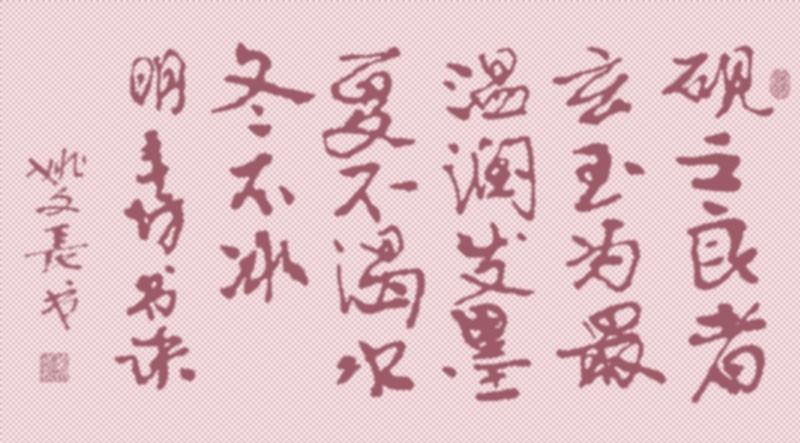 砚之良者
玄玉为最
温润发墨
夏不水
冬不冰
明书
姚文長书